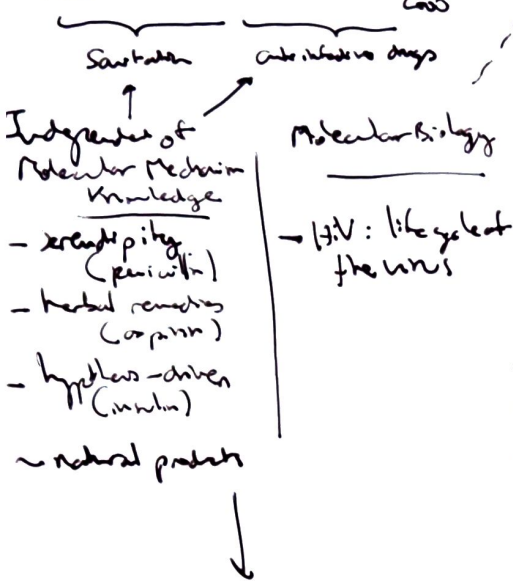 2000
Sanitation
anti infective drugs
Independent of
Molecular Mechanism
Knowledge
- serendipity
(penicillin)
- herbal remedies
(aspirin)
- hypothesis-driven
(insulin)
~ natural products
Molecular Biology
- HiV: life cycle of
the virus